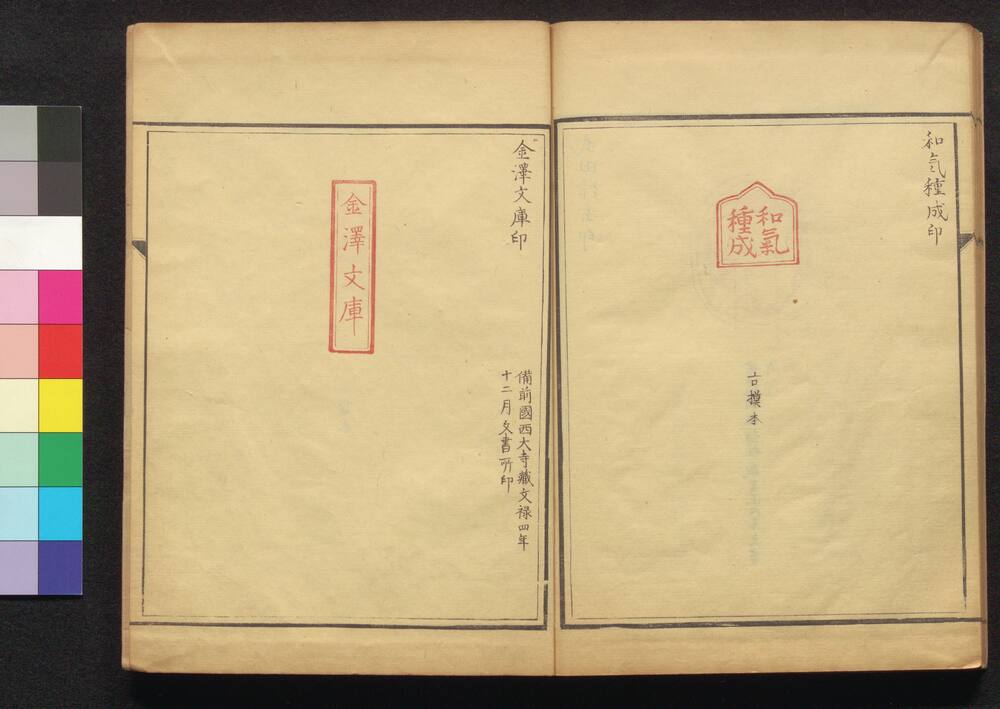 和氣種成印
和氣
種成
古摸本
金澤文庫印
備前國西大寺藏文禄四年
十二月文書所印
金澤文庫